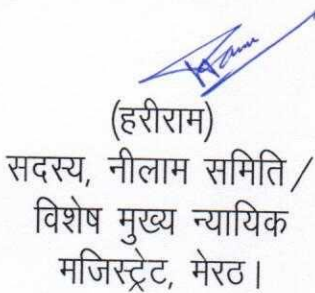 (हरीराम)
सदस्य, नीलाम समिति /
विशेष मुख्य न्यायिक
मजिस्ट्रेट, मेरठ।